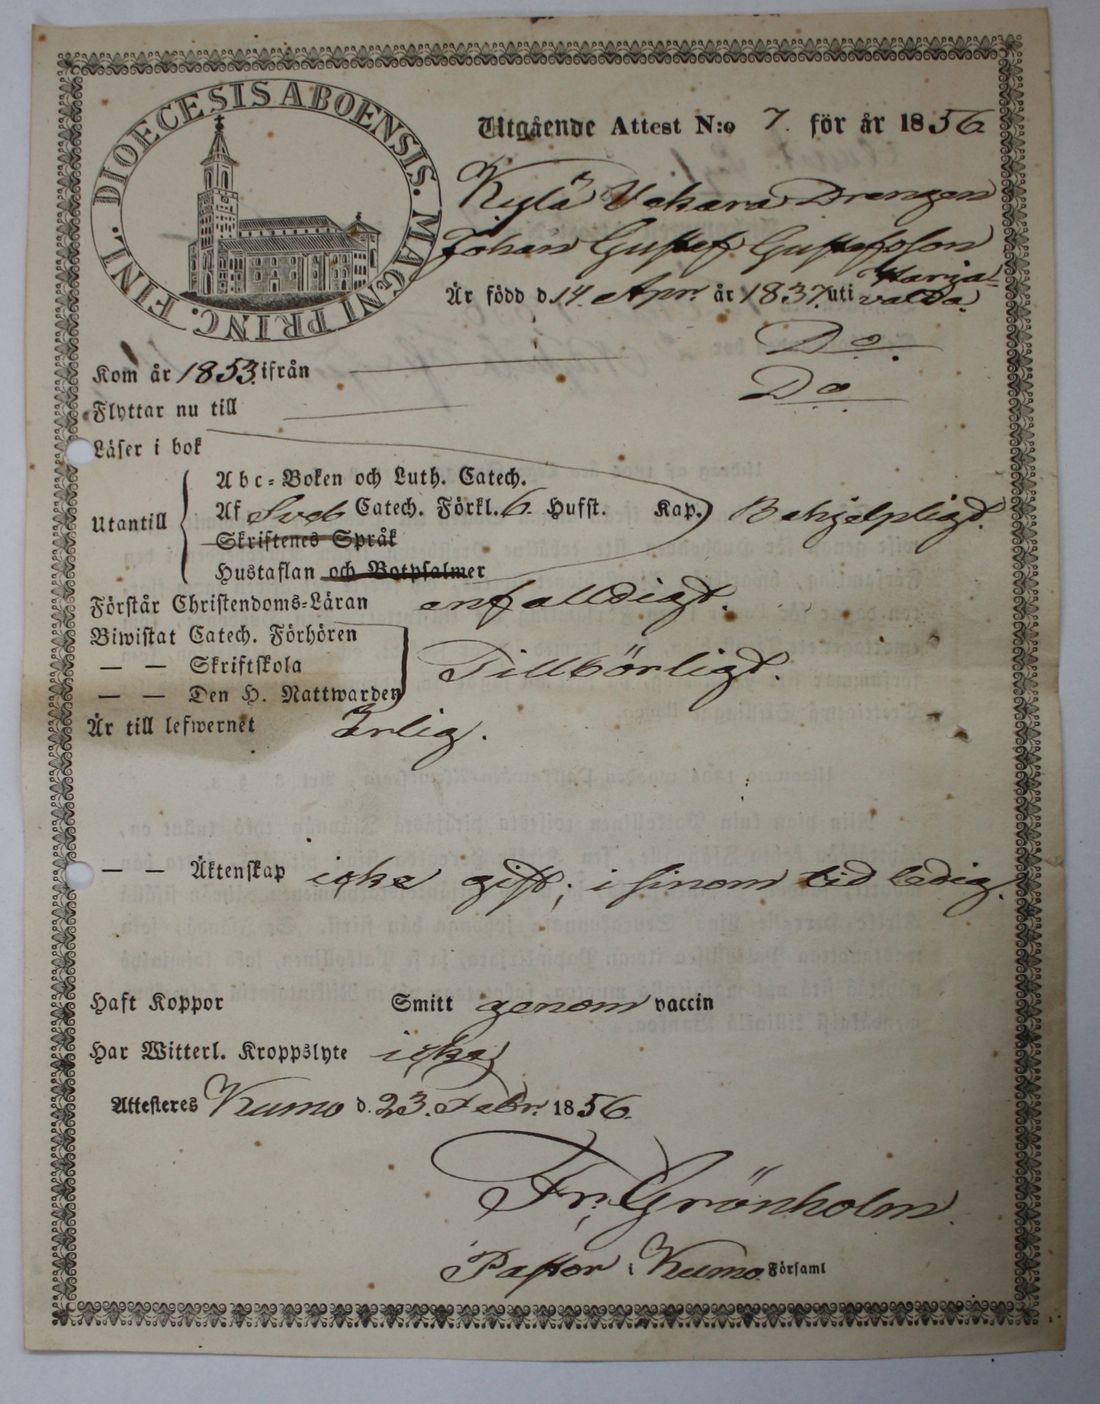 DIOECESIS ABOENSIS. MAGNI PRINC. FINL.
Utgående Attest N:o 7. för år 1856
Kylä Uckara Drengen
Johan Gustaf Gustafsson
Är född d. 14. Apr. år 1837. uti Harja-
valda.
Kom år 1853. ifrån Do.
Flyttar nu till Do.
Läser i bok
Abc-Boken och Luth. Catech.
Utantill Af Sveb Catech. Förkl. 6. Hufst. Kap. Behjelpligt.
Skriftenes Språk
Hustaflan och Botpsalmer
Förstår Christendoms-Läran enfalldigt.
Biwistat Catech. Förhören
— — Skriftskola Tillbörligt.
— — Den H. Nattwarden
Är till lefwernet Ärlig.
— — Äktenskap icke gift; i sinom tid ledig.
Haft Koppor Smitt genom vaccin
Har Witterl. Kroppslyte icke
Attesteres Kumo d. 23. Febr. 1856.
Fr. Grönholm.
Pastor i Kumo Församl